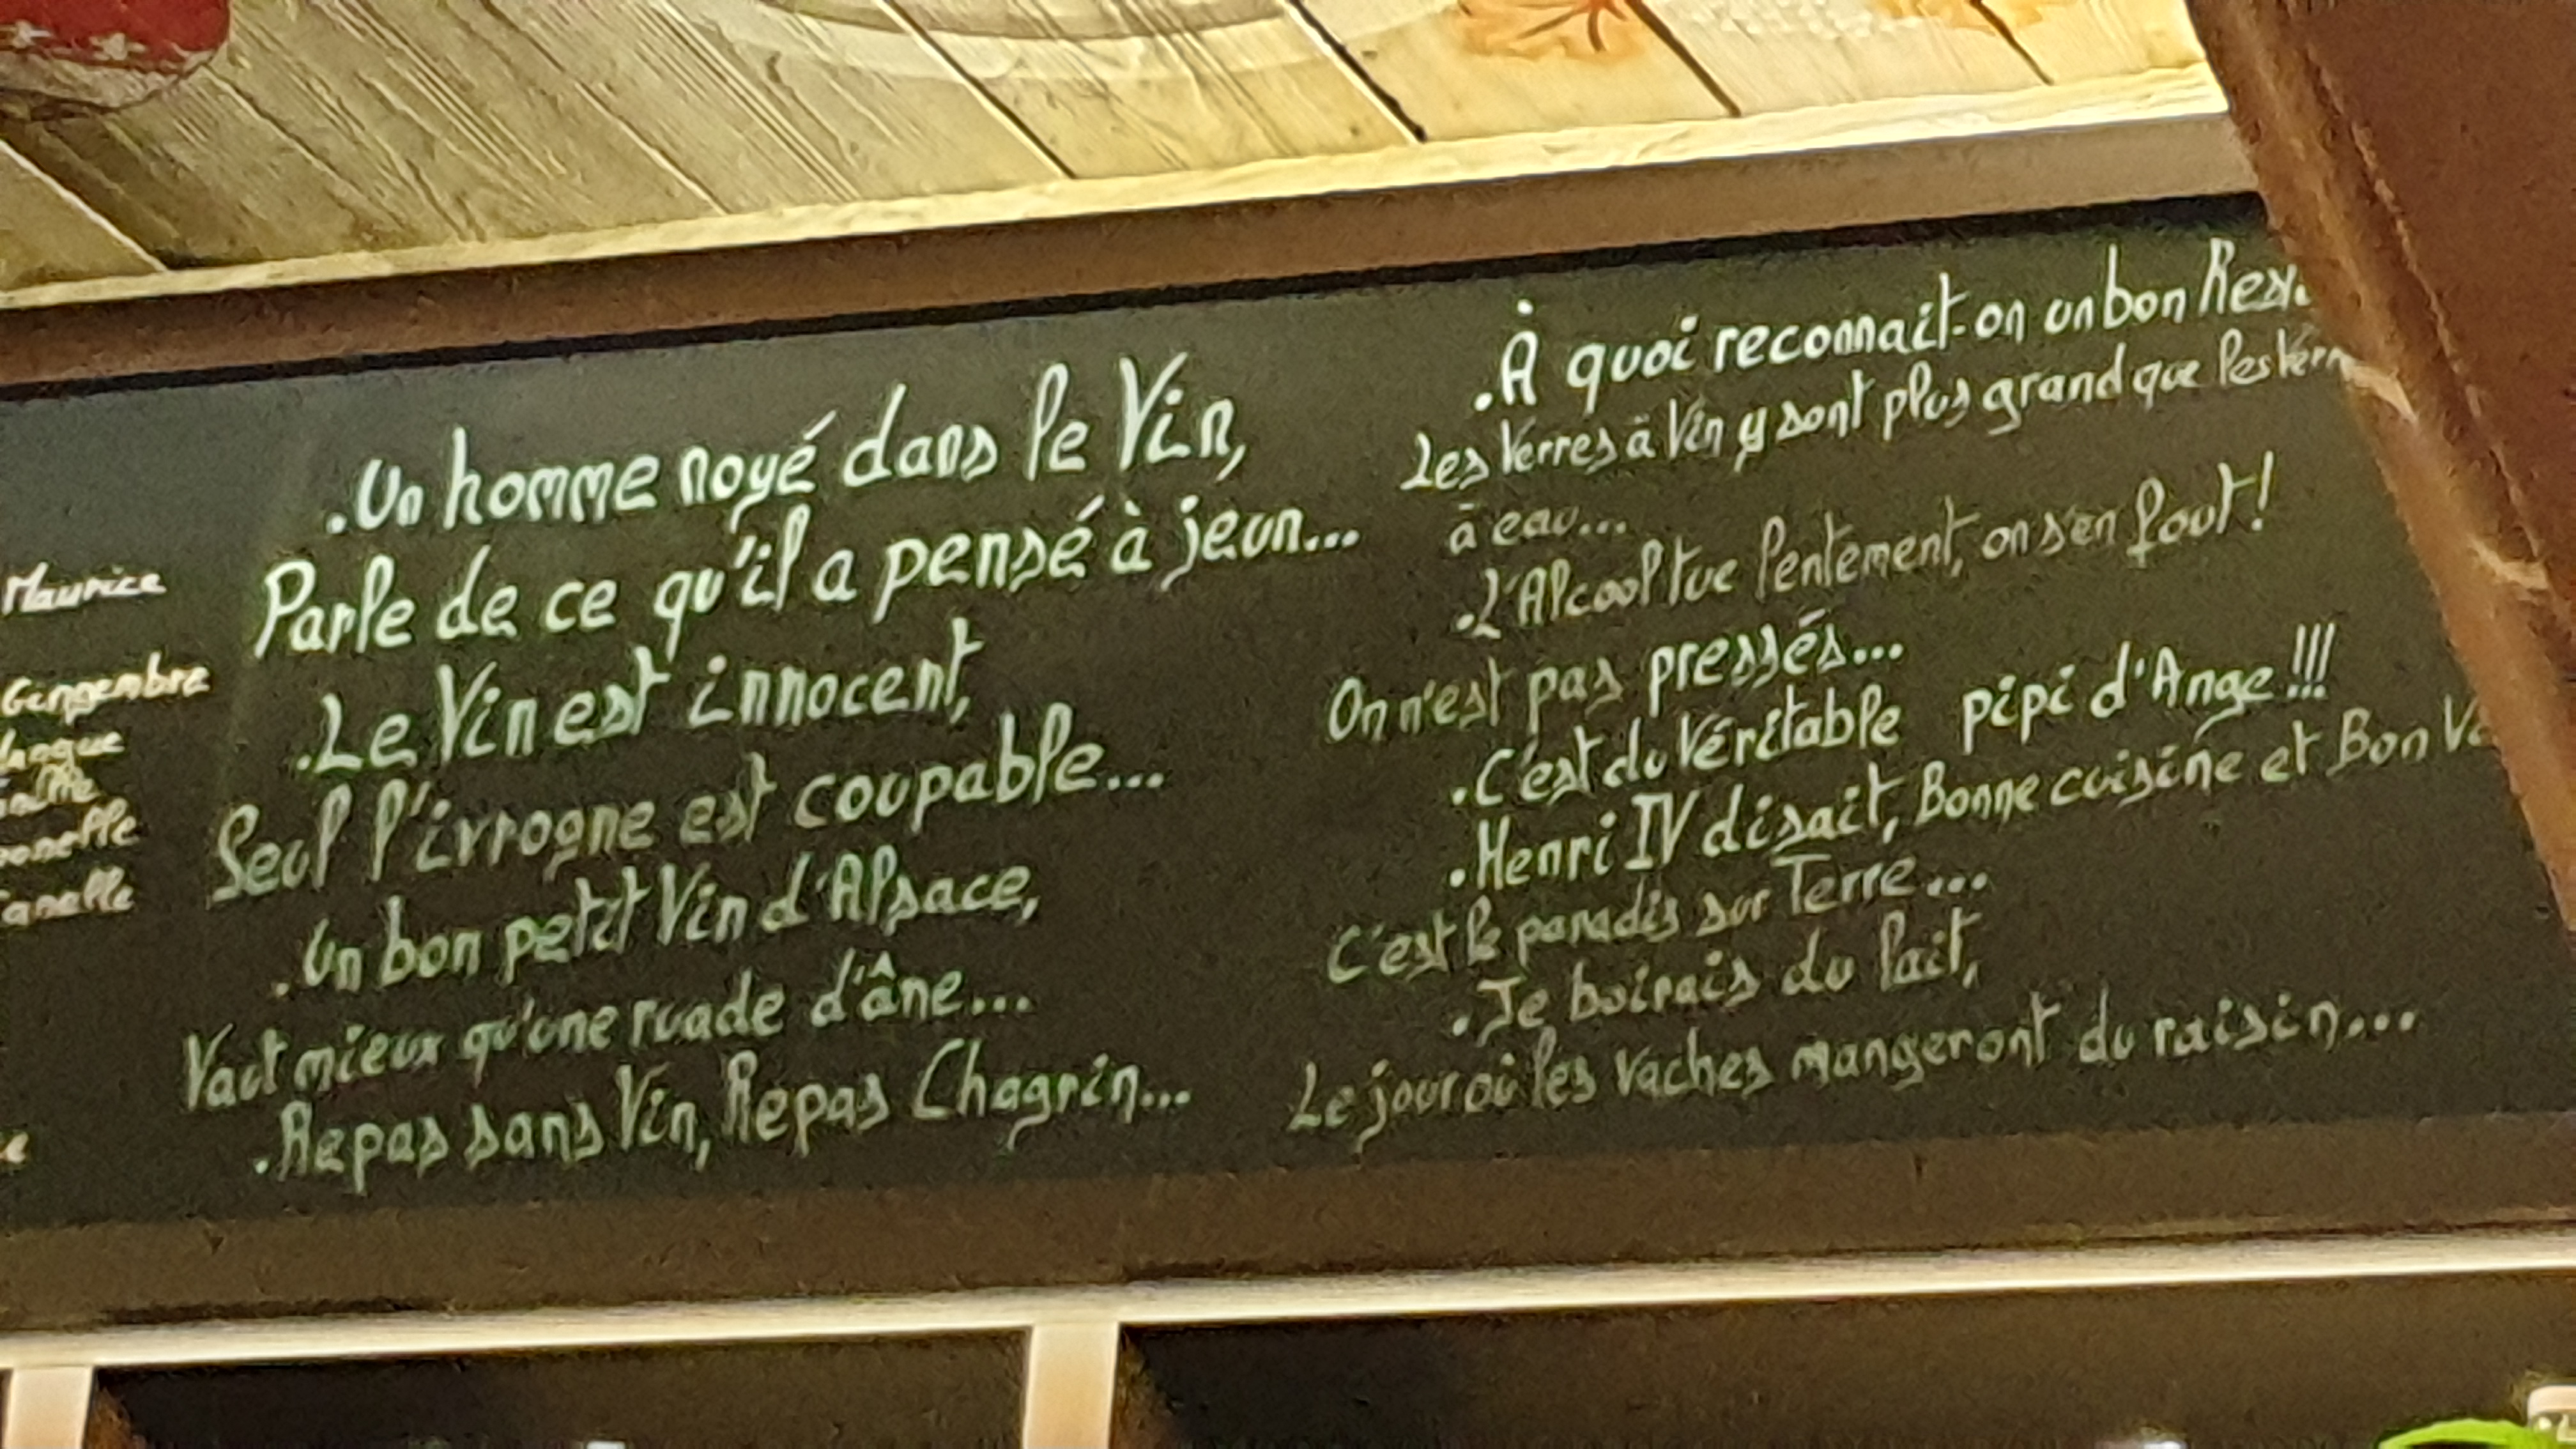 Maurice
Gingembre
.Un homme noyé dans le Vin,
Parle de ce qu'il a pensé à jeun...
.Le Vin est innocent,
Seul l'ivrogne est coupable...
.Un bon petit Vin d'Alsace,
Vaut mieux qu'une ruade d'âne...
.Repas sans Vin, Repas Chagrin...
.À quoi reconnait-on un bon
Les Verres à Vin y sont plus grand que les
à eau...
.L'Alcool tue lentement, on s'en fout!
On n'est pas pressés...
.C'est du Véritable pipi d'Ange!!!
.Henri IV disait, Bonne cuisine et Bon
C'est le paradis sur Terre...
.Je boirais du lait,
Le jour où les vaches mangeront du raisin...